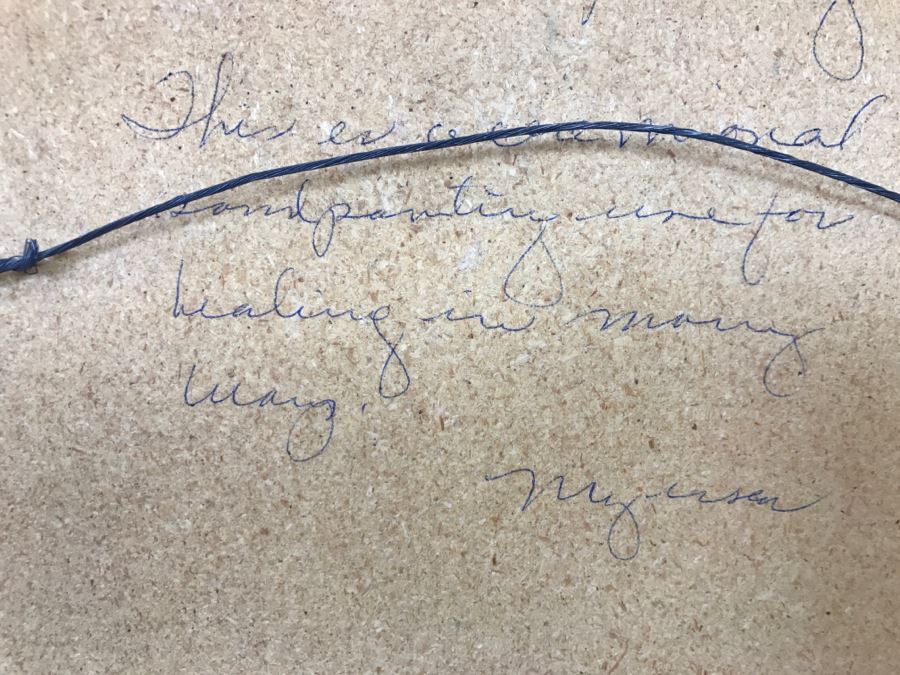 This is a ceremonial
sandpainting use for
healing in many
way.